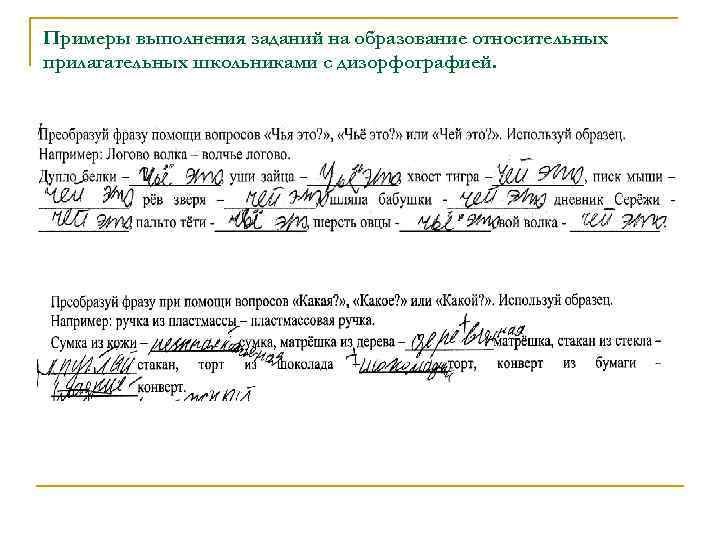 Примеры выполнения заданий на образование относительных
прилагательных школьниками с дизорфографией.
Преобразуй фразу помощи вопросов «Чья это?», «Чьё это?» или «Чей это?». Используй образец.
Например: Логово волка – волчье логово.
Дупло белки – чьё это, уши зайца – чьё это, хвост тигра – чей это, писк мыши –
чей это рёв зверя – чей это, шляпа бабушки - чей это, дневник Серёжи -
чей это пальто тёти - чьё это, шерсть овцы - чьё это, вой волка - чей это.
Преобразуй фразу при помощи вопросов «Какая?», «Какое?» или «Какой?». Используй образец.
Например: ручка из пластмассы – пластмассовая ручка.
Сумка из кожи – сумка, матрёшка из дерева – деревяная матрёшка, стакан из стекла –
стакан, торт из шоколада – торт, конверт из бумаги –
конверт.